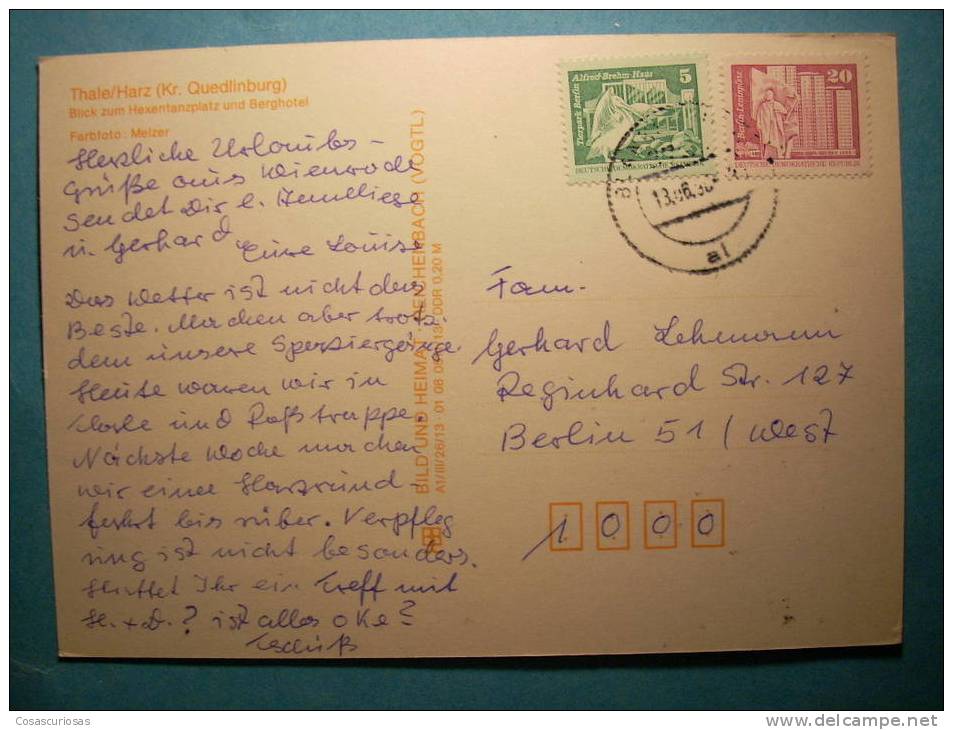 Thale/Harz (Kr. Quedlinburg)
Blick zum Hexentanzplatz und Berghotel
Farbfoto: Melzer
Herzliche Urlaubs-
Grüße aus Wienrode
sendet Dir l. Annliese
u. Gerhard
Eure Louise
Das Wetter ist nicht das
Beste. Machen aber trotz-
dem unsere Spaziergänge.
Heute waren wir in
und Roßtrappe.
Nächste Woche machen
wir eine Harzrund-
fahrt bis rüber. Verpfleg
ung ist nicht besonders.
Hattet Ihr ein Treff mit
H. + D.? ist alles oke?
Tschüß
BILD UND HEIMAT REICHENBACH (VOGTL)
A1/III/26/13 · 01 08 DDR 0,20 M
Alfred-Brehm-Haus
5
Tierpark Berlin
DEUTSCHE DEMOKRATISCHE
20
Berlin-Leninplatz
DEUTSCHE DEMOKRATISCHE REPUBLIK
13.06.
al
Fam.
Gerhard Lehmann
Reginhard Str. 127
Berlin 51 / West
1 0 0 0
Cosascuriosas
www.delcampe.net